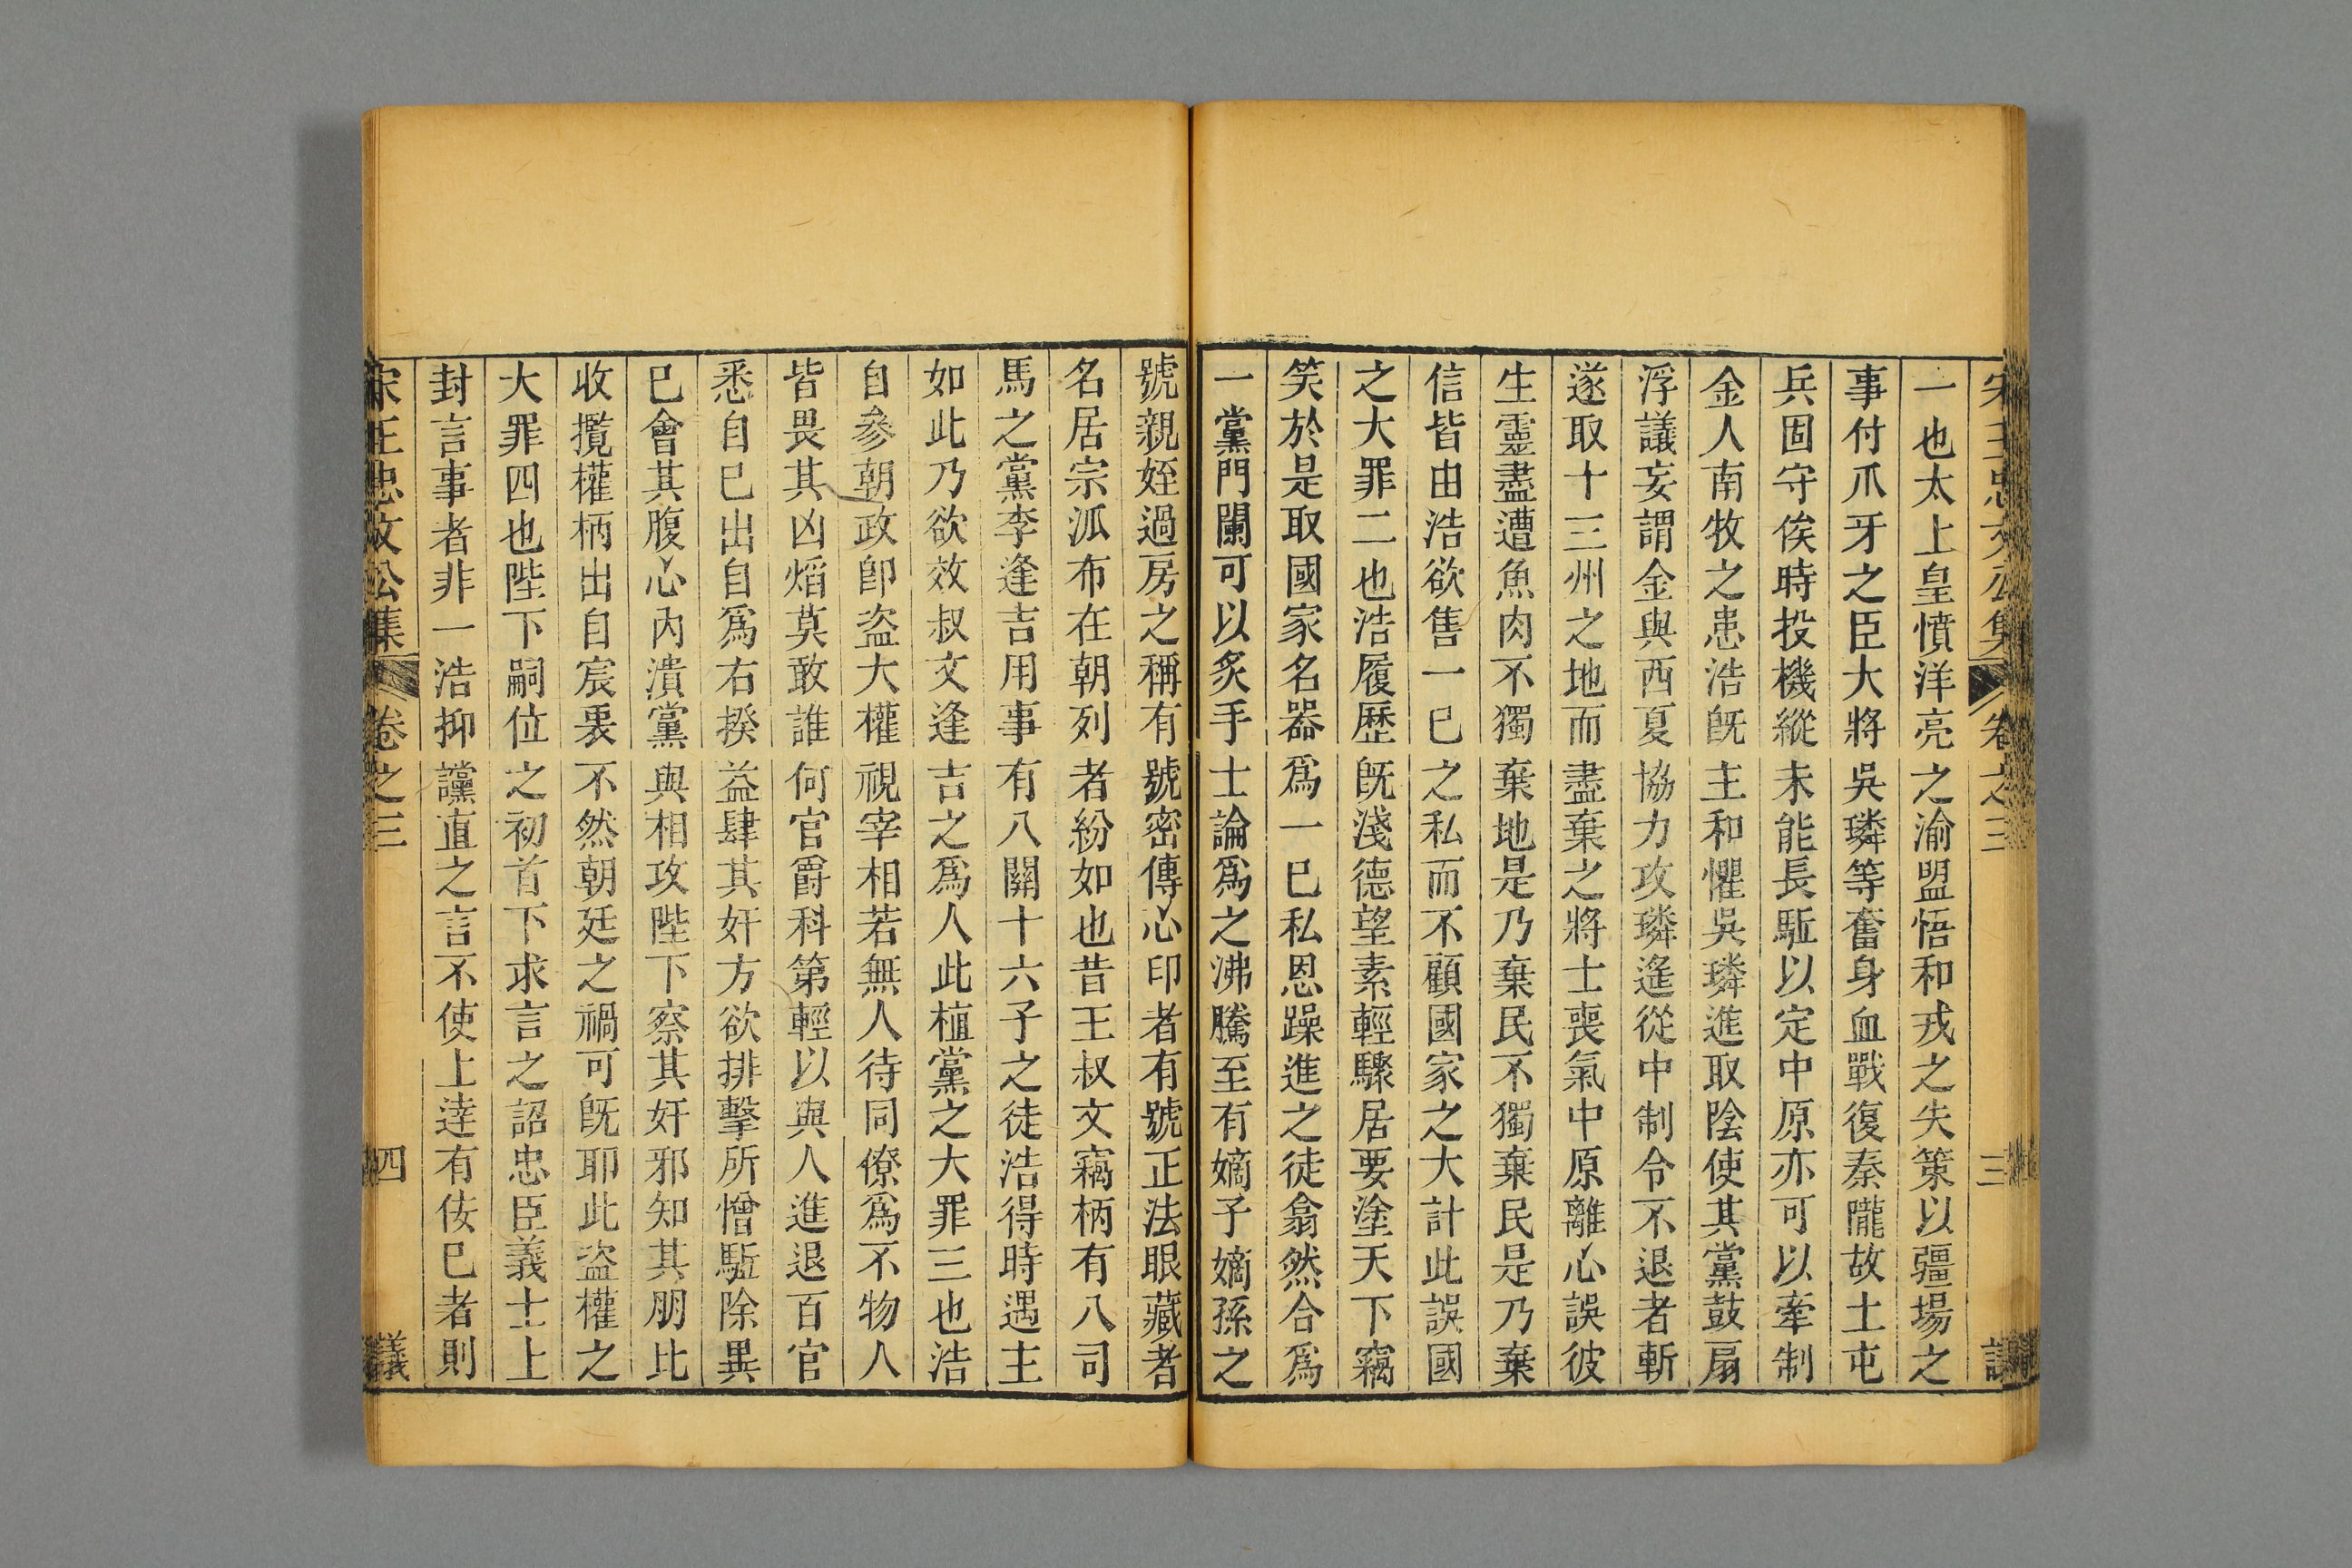 宋王忠文公集 卷之三 三 議
一也太上皇憤洋亮之渝盟悟和戎之失策以疆場之
事付爪牙之臣大將吳璘等奮身血戰復秦隴故土屯
兵固守俟時投機縱未能長驅以定中原亦可以牽制
金人南牧之患浩旣主和懼吳璘進取陰使其黨鼓扇
浮議妄謂金與西夏協力攻璘遙從中制令不退者斬
遂取十三州之地而盡棄之將士喪氣中原離心誤彼
生靈盡遭魚肉不獨棄地是乃棄民不獨棄民是乃棄
信皆由浩欲售一已之私而不顧國家之大計此誤國
之大罪二也浩履歷旣淺德望素輕驟居要塗天下竊
笑於是取國家名器爲一已私恩躁進之徒翕然合爲
一黨門闌可以炙手士論爲之沸騰至有嫡子嫡孫之
號親姪過房之稱有號密傳心印者有號正法眼藏者
名居宗派布在朝列者紛如也昔王叔文竊柄有八司
馬之黨李逢吉用事有八關十六子之徒浩得時遇主
如此乃欲效叔文逢吉之爲人此植黨之大罪三也浩
自參朝政卽盜大權視宰相若無人待同僚爲不物人
皆畏其凶焰莫敢誰何官爵科第輕以與人進退百官
悉自已出自爲右揆益肆其奸方欲排擊所憎駈除異
已會其腹心內潰黨與相攻陛下察其奸邪知其朋比
收攬權柄出自宸衷不然朝廷之禍可旣耶此盜權之
大罪四也陛下嗣位之初首下求言之詔忠臣義士上
封言事者非一浩抑讜直之言不使上達有侫已者則
宋王忠文公集 卷之三 四 議